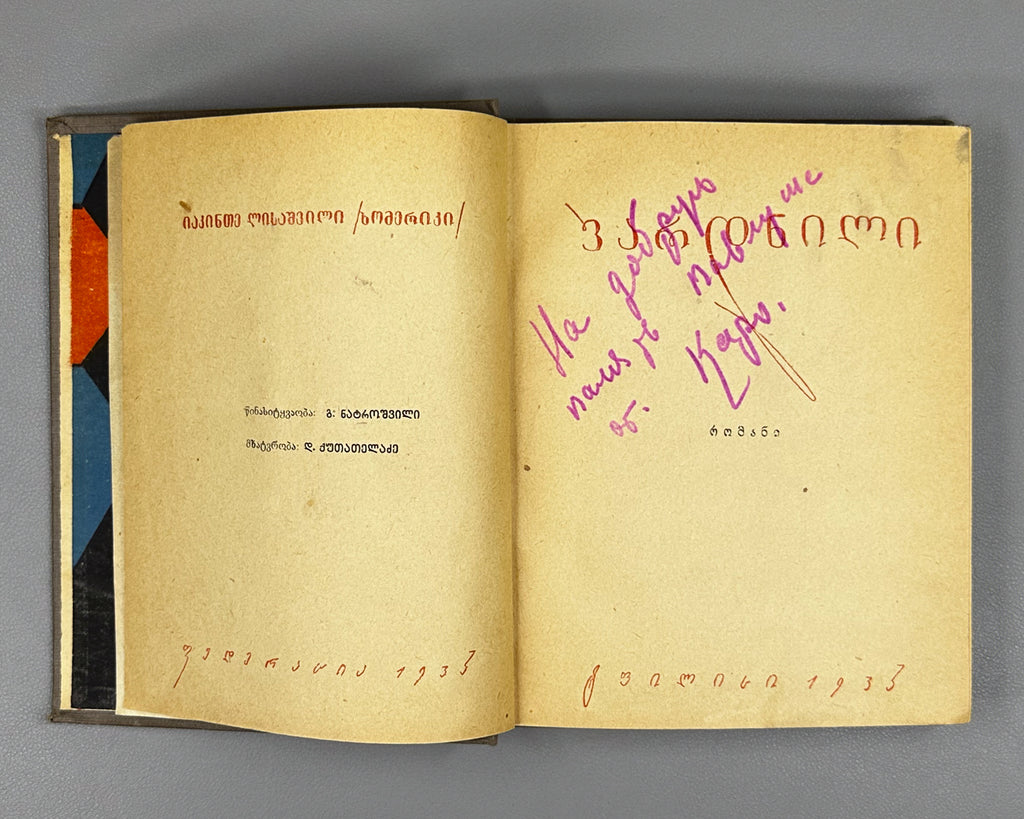 იაკინთე ლისაშვილი /ხომერიკი/
წინასიტყვაობა: გ. ნატროშვილი
მხატვრობა: დ. ქუთათელაძე
ფედერაცია 1933
ვარდნილი
На добрую
память Павлуше
от. Каро.
რომანი
ტფილისი 1933